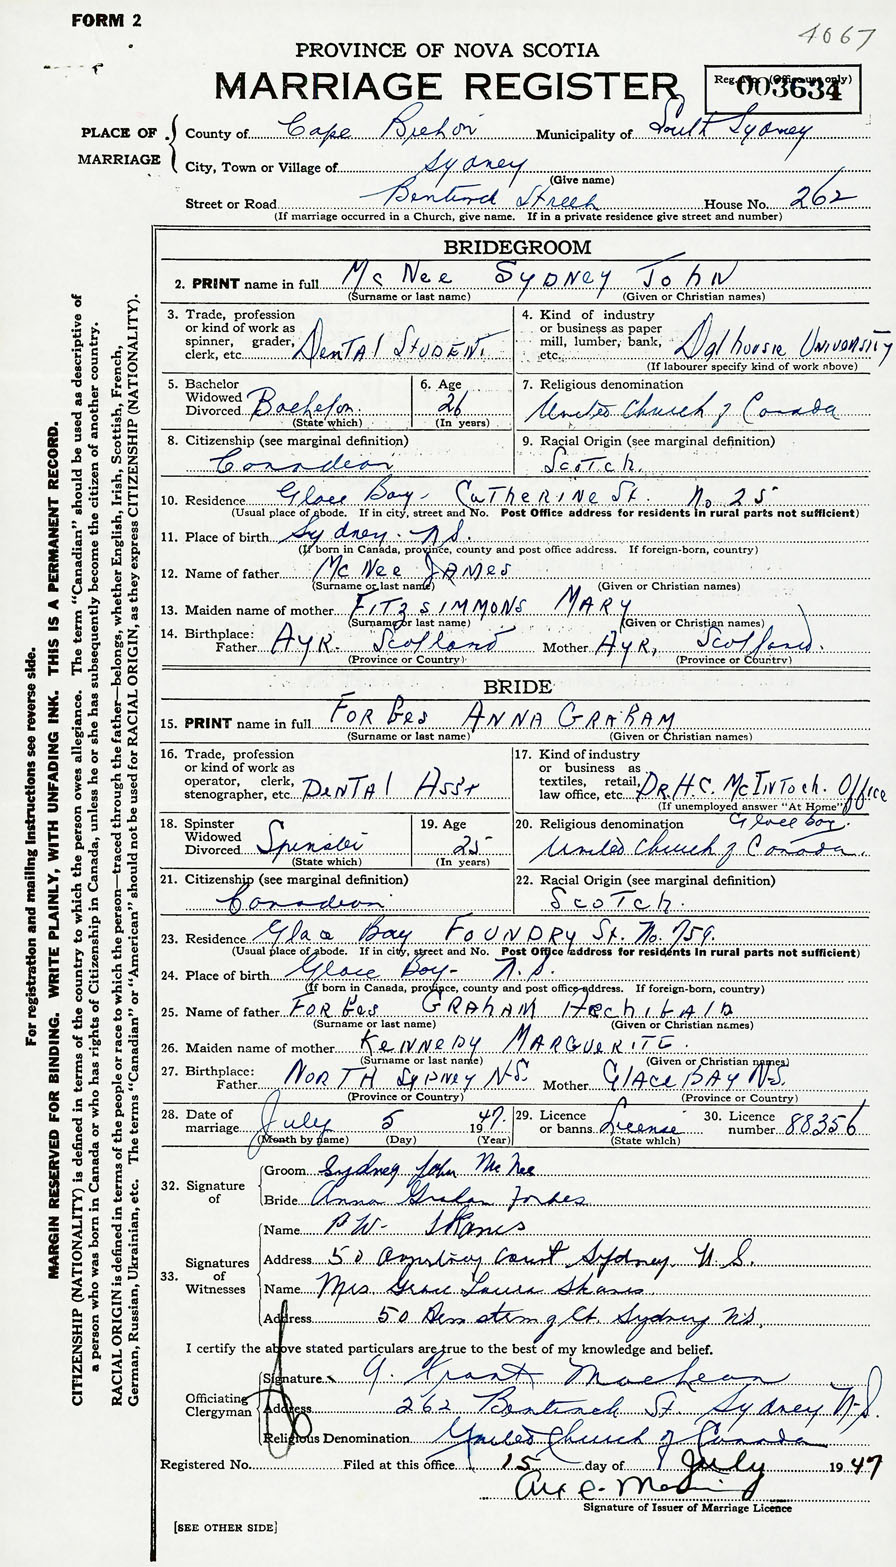 FORM 2
4067
PROVINCE OF NOVA SCOTIA
MARRIAGE REGISTER
Reg. No. (Office use only)
003634
PLACE OF MARRIAGE
County of Cape Breton Municipality of South Sydney
City, Town or Village of Sydney
(Give name)
Street or Road Bentinck Street House No. 262
(If marriage occurred in a Church, give name. If in a private residence give street and number)
BRIDEGROOM
2. PRINT name in full McNee SYDNEY JOHN
(Surname or last name) (Given or Christian names)
3. Trade, profession or kind of work as spinner, grader, clerk, etc. DENTAL STUDENT.
4. Kind of industry or business as paper mill, lumber, bank, etc. Dalhousie UNIVERSITY
(If labourer specify kind of work above)
5. Bachelor Widowed Divorced Bachelor.
(State which)
6. Age 26
(In years)
7. Religious denomination United Church of Canada
8. Citizenship (see marginal definition) Canadian
9. Racial Origin (see marginal definition) Scotch.
10. Residence Glace Bay - CATHERINE St. No 25
(Usual place of abode. If in city, street and No. Post Office address for residents in rural parts not sufficient)
11. Place of birth Sydney. N.S.
(If born in Canada, province, county and post office address. If foreign-born, country)
12. Name of father McNee JAMES
(Surname or last name) (Given or Christian names)
13. Maiden name of mother FITZSIMMONS MARY
(Surname or last name) (Given or Christian names)
14. Birthplace: Father AYR. Scotland Mother AYR, Scotland.
(Province or Country) (Province or Country)
BRIDE
15. PRINT name in full FORBes ANNA GRAHAM
(Surname or last name) (Given or Christian names)
16. Trade, profession or kind of work as operator, clerk, stenographer, etc. DENTAL ASST
17. Kind of industry or business as textiles, retail, law office, etc. DR. H.C. McINTOCH. Office
(If unemployed answer "At Home")
Glace bay.
18. Spinster Widowed Divorced Spinster
(State which)
19. Age 25
(In years)
20. Religious denomination United Church of Canada.
21. Citizenship (see marginal definition) Canadian
22. Racial Origin (see marginal definition) SCOTCH.
23. Residence Glace Bay FOUNDRY St. No. 759.
(Usual place of abode. If in city, street and No. Post Office address for residents in rural parts not sufficient)
24. Place of birth Glace Bay - N.S.
(If born in Canada, province, county and post office address. If foreign-born, country)
25. Name of father FORBes GRAHAM ARCHIBALD
(Surname or last name) (Given or Christian names)
26. Maiden name of mother KENNEDY MARGUERITE.
(Surname or last name) (Given or Christian names)
27. Birthplace: Father NORTH SYDNEY N.S. Mother GLACE BAY N.S.
(Province or Country) (Province or Country)
28. Date of marriage July 5 1947.
(Month by name) (Day) (Year)
29. Licence or banns License
(State which)
30. Licence number 88356
32. Signature of
Groom Sydney John McNee
Bride Anna Graham Forbes
33. Signatures of Witnesses
Name
Address 50 Court Sydney N.S.
Name Mrs. Grace Laura
Address 50 Ct. Sydney NS.
I certify the above stated particulars are true to the best of my knowledge and belief.
Officiating Clergyman
Signature Grant MacLean
Address 262 Bentinck St. Sydney N.S.
Religious Denomination United Church of Canada
Registered No. Filed at this office 15 day of July 1947
Signature of Issuer of Marriage Licence
[SEE OTHER SIDE]
For registration and mailing instructions see reverse side.
MARGIN RESERVED FOR BINDING. WRITE PLAINLY, WITH UNFADING INK. THIS IS A PERMANENT RECORD.
CITIZENSHIP (NATIONALITY) is defined in terms of the country to which the person owes allegiance. The term "Canadian" should be used as descriptive of
a person who was born in Canada or who has rights of Citizenship in Canada, unless he or she has subsequently become the citizen of another country.
RACIAL ORIGIN is defined in terms of the people or race to which the person—traced through the father—belongs, whether English, Irish, Scottish, French,
German, Russian, Ukrainian, etc. The terms "Canadian" or "American" should not be used for RACIAL ORIGIN, as they express CITIZENSHIP (NATIONALITY).